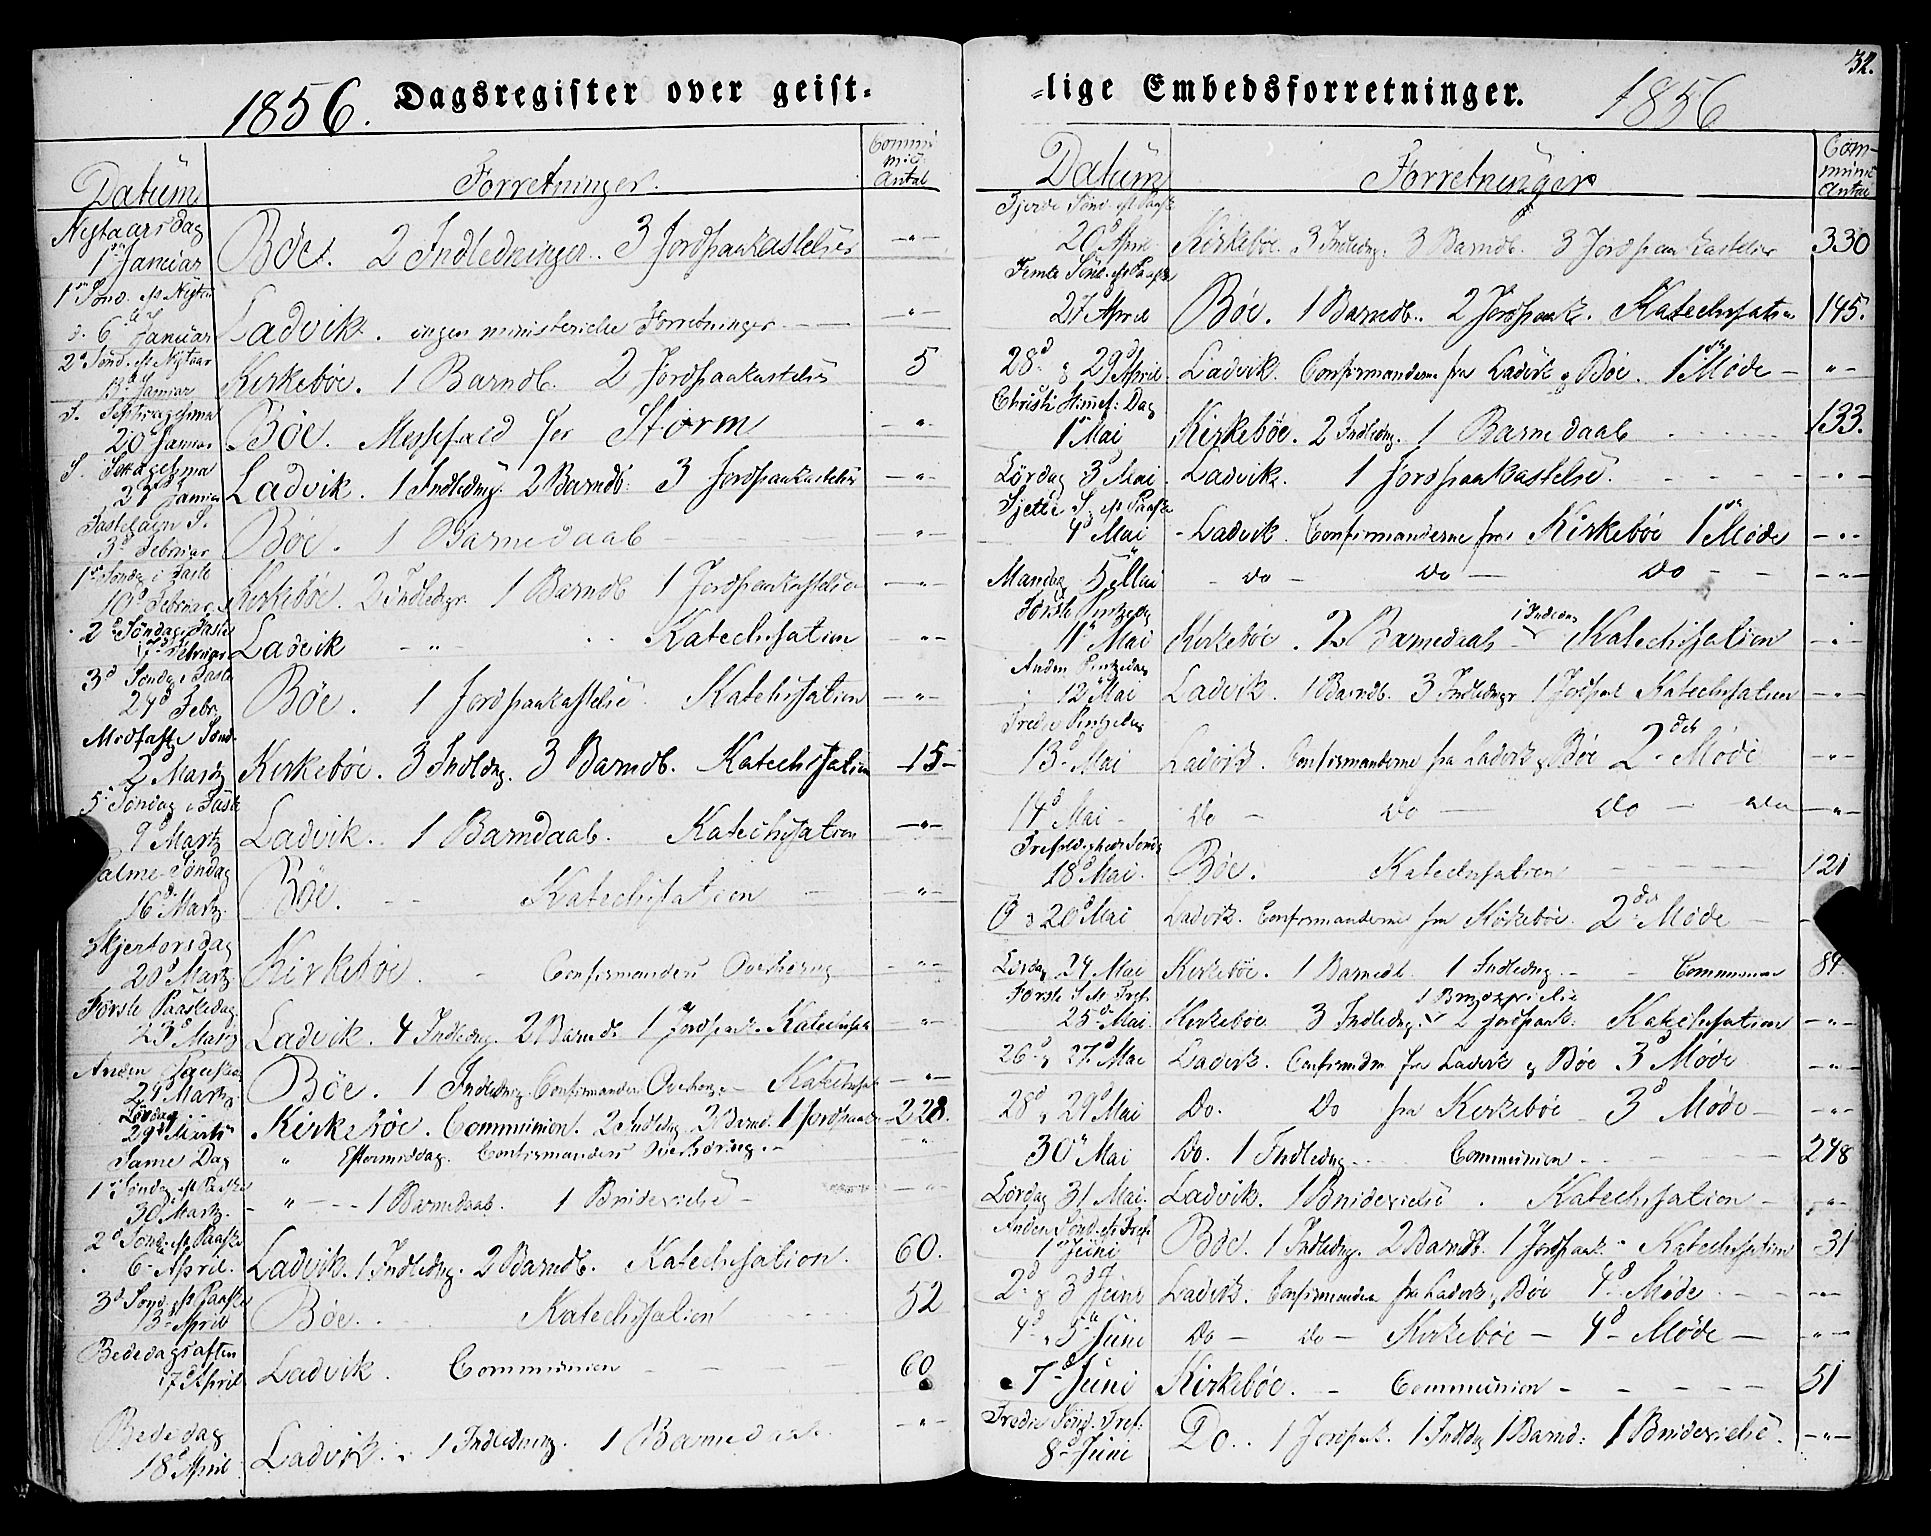 1856. Dagsregister over geist-
Datum
Forretninger.
Communic: Antal
Nytaarsdag
1ste Januar Böe. 2 Indledninger. 3 Jordpaakastelser -"-
1ste Sönd. eft Nytaar
d. 6te Januar Ladvik. ingen ministerielle Forretninger. - - -"-
2d Sönd. eft Nytaar
13d Januar Kirkeböe. 1 Barndb. 2 Jordpaakastelser 5
S. Septuagesima
20d Januar Böe. Messefald for Storm -"-
S. Sexagesima
27d Januar Ladvik. 1 Indledng. 2 Barndb. 3 Jordpaakastelser -"-
Fastelavn S.
3d Februar Böe. 1 Barnedaab -"-
1ste Söndag i Faste
10d Februar Kirkeböe. 2 Indledngr. 1 Barndb 1 Jordpaakastelse -"-
2d Söndag i Faste
17d Februar Ladvik -"- Katechisation -"-
3d Söndag i Faste
24d Febr. Böe. 1 Jordpaakastelse Katechisation -"-
Midfaste Sönd.
2d Martz Kirkeböe. 3 Indledng. 3 Barndb. Katechisation -15-
5te Söndag i Faste
9d Martz Ladvik. 1 Barndaab. Katechisation -"-
Palme-Söndag
16d Martz. Böe. - - Katechisation - -"-
Skjertorsdag
20d Martz. Kirkeböe. - Confirmanders Overhöring -"-
Förste Paaskedag
23d Martz Ladvik. 4 Indledng. 2 Barndb 1 Jordpaak. Katechisat -"-
Anden Paaskedag
24d Martz. Böe. 1 Indledning. Confirmanders Overhör. - Katechisat -"-
Lördag
29d Martz Kirkeböe. Communion. 2 Indledng. 2 Barnd. 1 Jordpaak. -228.
Same Dag " Eftermiddag. Confirmanders Overhöring. - "
1ste Söndag eft Paaske
30d Martz. - " - - - 1 Barnedaab. 1 Brudevielse - -"-
2d Sönd. eft Paaske
6te April. Ladvik. 1 Indledng. 2 Barndb. Katechisation. 60.
3d Sönd. eft Paaske
13d April Böe. . . Katechisation 52
Bededagsaften
17d April Ladvik. Communion - - - - 60
Bededag
18d April Ladvik. . 1 Indledning. 1 Barnedaab. -"-
-lige Embedsforretninger. 1856
32.
Datum
Forretninger
Communic Antal
Fjerde Sönd. eft Paaske
20d April Kirkeböe. 3 Indledng. 3 Barndb. 3 Jordpaakastelser 330
Femte Sönd. eft Paaske
27 April Böe. 1 Barndb. 2 Jordpaak. Katechisation 145.
28d & 29d April. Ladvik. Confirmanderne fra Ladvik & Böe. 1ste Möde - "-
Christi Himmelf: Dag
1ste Mai Kirkeböe. 2 Indledng. 1 Barnedaab - - - 133.
Lördag 3d Mai Ladvik. 1 Jordpaakastelse. - - - -"-
Sjette S. eft Paaske
4d Mai - Ladvik. Confirmanderne fra Kirkeböe 1ste Möde -"-
Mandag 5te Mai - do - do - do - - -"-
Förste Pintzedag
11te Mai Kirkeböe. 2 Barnedaab - 1 Indledn Katechisation -"-
Anden Pintzedag
12te Mai Ladvik. 1 Barndb. 3 Indledngr 1 Jordpaak Katechisation -"-
Tredie Pintzedag
13d Mai Ladvik. Confirmanderne fra Ladvik & Böe 2det Möde -"-
14d Mai - do - do - do - do -"-
Trefoldigheds Sönd
18d Mai. Böe. Katechisation - - - - 121
& 20d Mai Ladvik. Confirmanderne fra Kirkeböe. 2det Möde - -
Lördag 24 Mai Kirkeböe. 1 Barnedb. 1 Indledng. - - Communion 84.
Förste S. eft Tref.
25de Mai. Kirkeböe. 3 Indledng. 1 Brudevielse 2 Jordpaak: Katechisation -"-
26d & 27d Mai Ladvik. Confirmdn fra Ladvik & Böe 3d Möde -"-
28d & 29d Mai Do. Do fra Kirkeböe - 3d Möde - -"-
30te Mai Do. 1 Indledng. - Communion - - - - 248
Lördag 31 Mai. Ladvik. 1 Brudevielse. Katechisation - -"-
Anden Sönd. eft Tref.
1 Juni Böe. 1 Indledng. 2 Barndb. 1 Jordpaak. - Katechisation -31
2d & 3d Juni Ladvik. Confirmanden fra Ladvik & Böe 4d Möde. - - -"-
4d & 5te Juni Do - do - Kirkeböe - 4d Möde - -"-
7d Juni Kirkeböe. - Communion - - - - 51
Tredie Sönd. Tref:
8d Juni Do. . 1 Jordpaak. 1 Indldg 1 Barnd: 1 Brudevielse. -"-